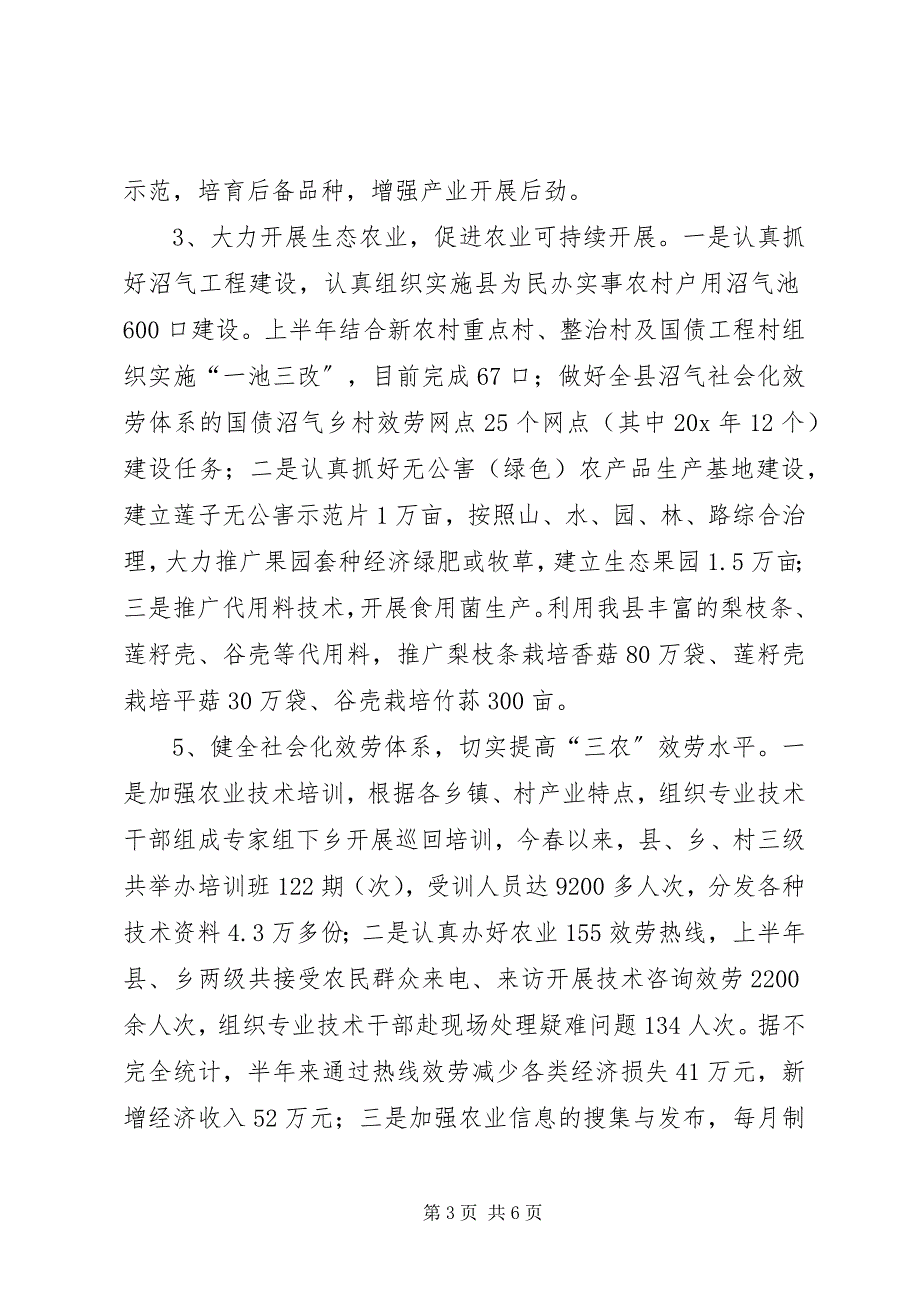 示范，培育后备品种，增强产业开展后劲。
3、大力开展生态农业，促进农业可持续开展。一是认真抓
好沼气工程建设，认真组织实施县为民办实事农村户用沼气池
600 口建设。上半年结合新农村重点村、整治村及国债工程村组
织实施“一池三改〞，目前完成 67 口；做好全县沼气社会化效
劳体系的国债沼气乡村效劳网点 25 个网点（其中 20x 年 12 个）
建设任务；二是认真抓好无公害（绿色）农产品生产基地建设，
建立莲子无公害示范片 1 万亩，按照山、水、园、林、路综合治
理，大力推广果园套种经济绿肥或牧草，建立生态果园 1.5 万亩；
三是推广代用料技术，开展食用菌生产。利用我县丰富的梨枝条、
莲籽壳、谷壳等代用料，推广梨枝条栽培香菇 80 万袋、莲籽壳
栽培平菇 30 万袋、谷壳栽培竹荪 300 亩。
5、健全社会化效劳体系，切实提高“三农〞效劳水平。一
是加强农业技术培训，根据各乡镇、村产业特点，组织专业技术
干部组成专家组下乡开展巡回培训，今春以来，县、乡、村三级
共举办培训班 122 期（次），受训人员达 9200 多人次，分发各种
技术资料 4.3 万多份；二是认真办好农业 155 效劳热线，上半年
县、乡两级共接受农民群众来电、来访开展技术咨询效劳 2200
余人次，组织专业技术干部赴现场处理疑难问题 134 人次。据不
完全统计，半年来通过热线效劳减少各类经济损失 41 万元，新
增经济收入 52 万元；三是加强农业信息的搜集与发布，每月制
第 3 页 共 6 页